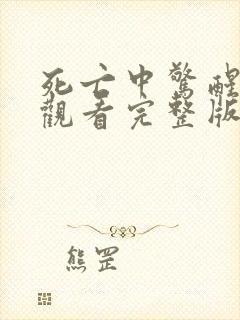 死亡中驚醒
觀看完整版
熊罡